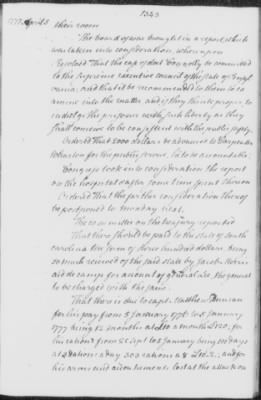 1343
1777. April 5
their room
The board of war brought in a report, which
was taken into consideration, whereupon
Resolved That the cap. of Con be committed
to the Supreme executive council of the state of Pensyl
vania; and that it be recommended to them to ex
amine into the matter and if they think proper, to
indulge the prisoners with such liberty as they
shall conceive to be consistent with the public safety.
Ordered That 5000 dollars be advanced to
Wharton for the public service, he to be accountable.
Congress took into consideration the report
on the hospital & after some time spent thereon
Ordered That the farther consideration thereof
be postponed to monday next.
The committee on the treasury reported
That there should be paid to the state of south
carolina the sum of three hundred dollars being
so much received of the said state by Jacob Morris
aid de camp for account of general Lee, the general
to be charged with the same.
That there is due to capt. Matthew Duncan
for his pay from 5 January 1776 to 5 January
1777 being 12 months at a month
for his rations from 28 Sept. to 5 January being 100 days
at 3 rations a day 300 rations a 8 and for
his arms and accoutrements lost at the attack on